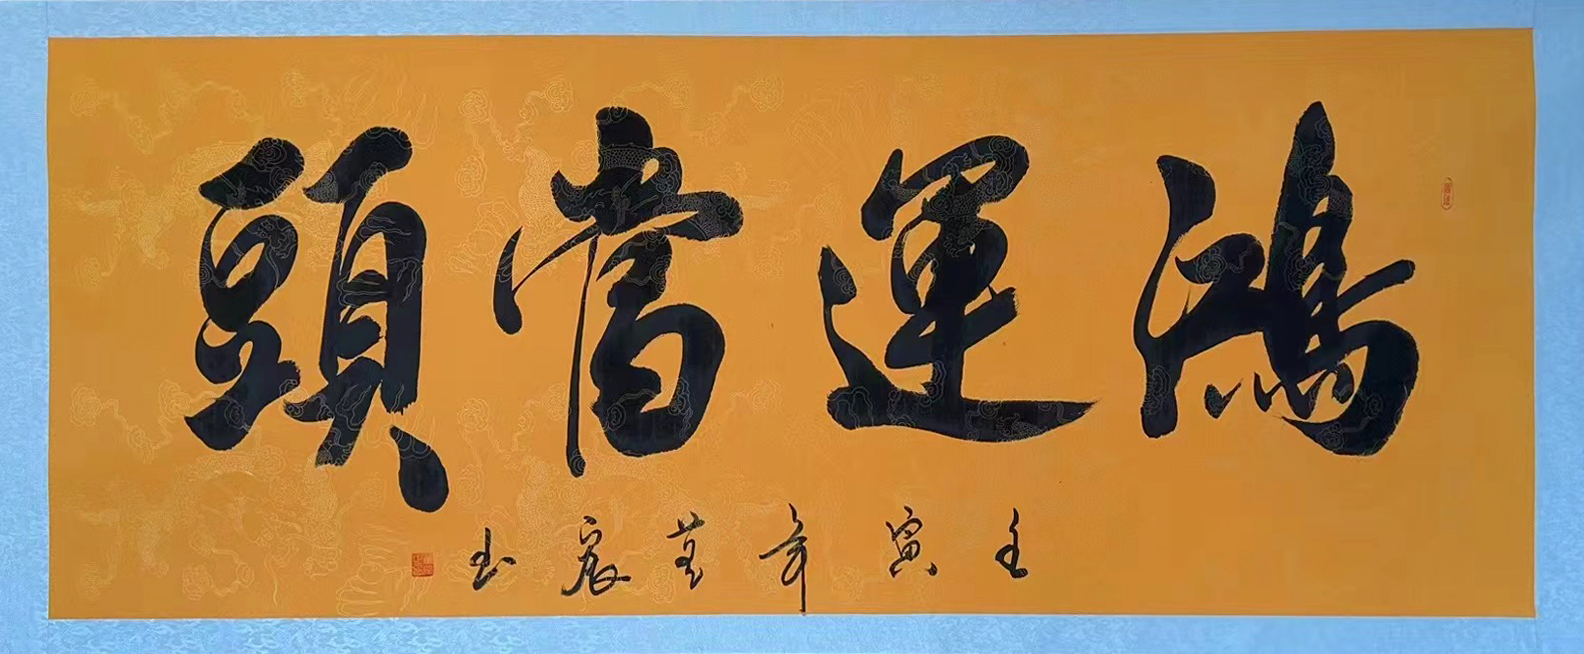 鴻運當頭
壬寅年
書